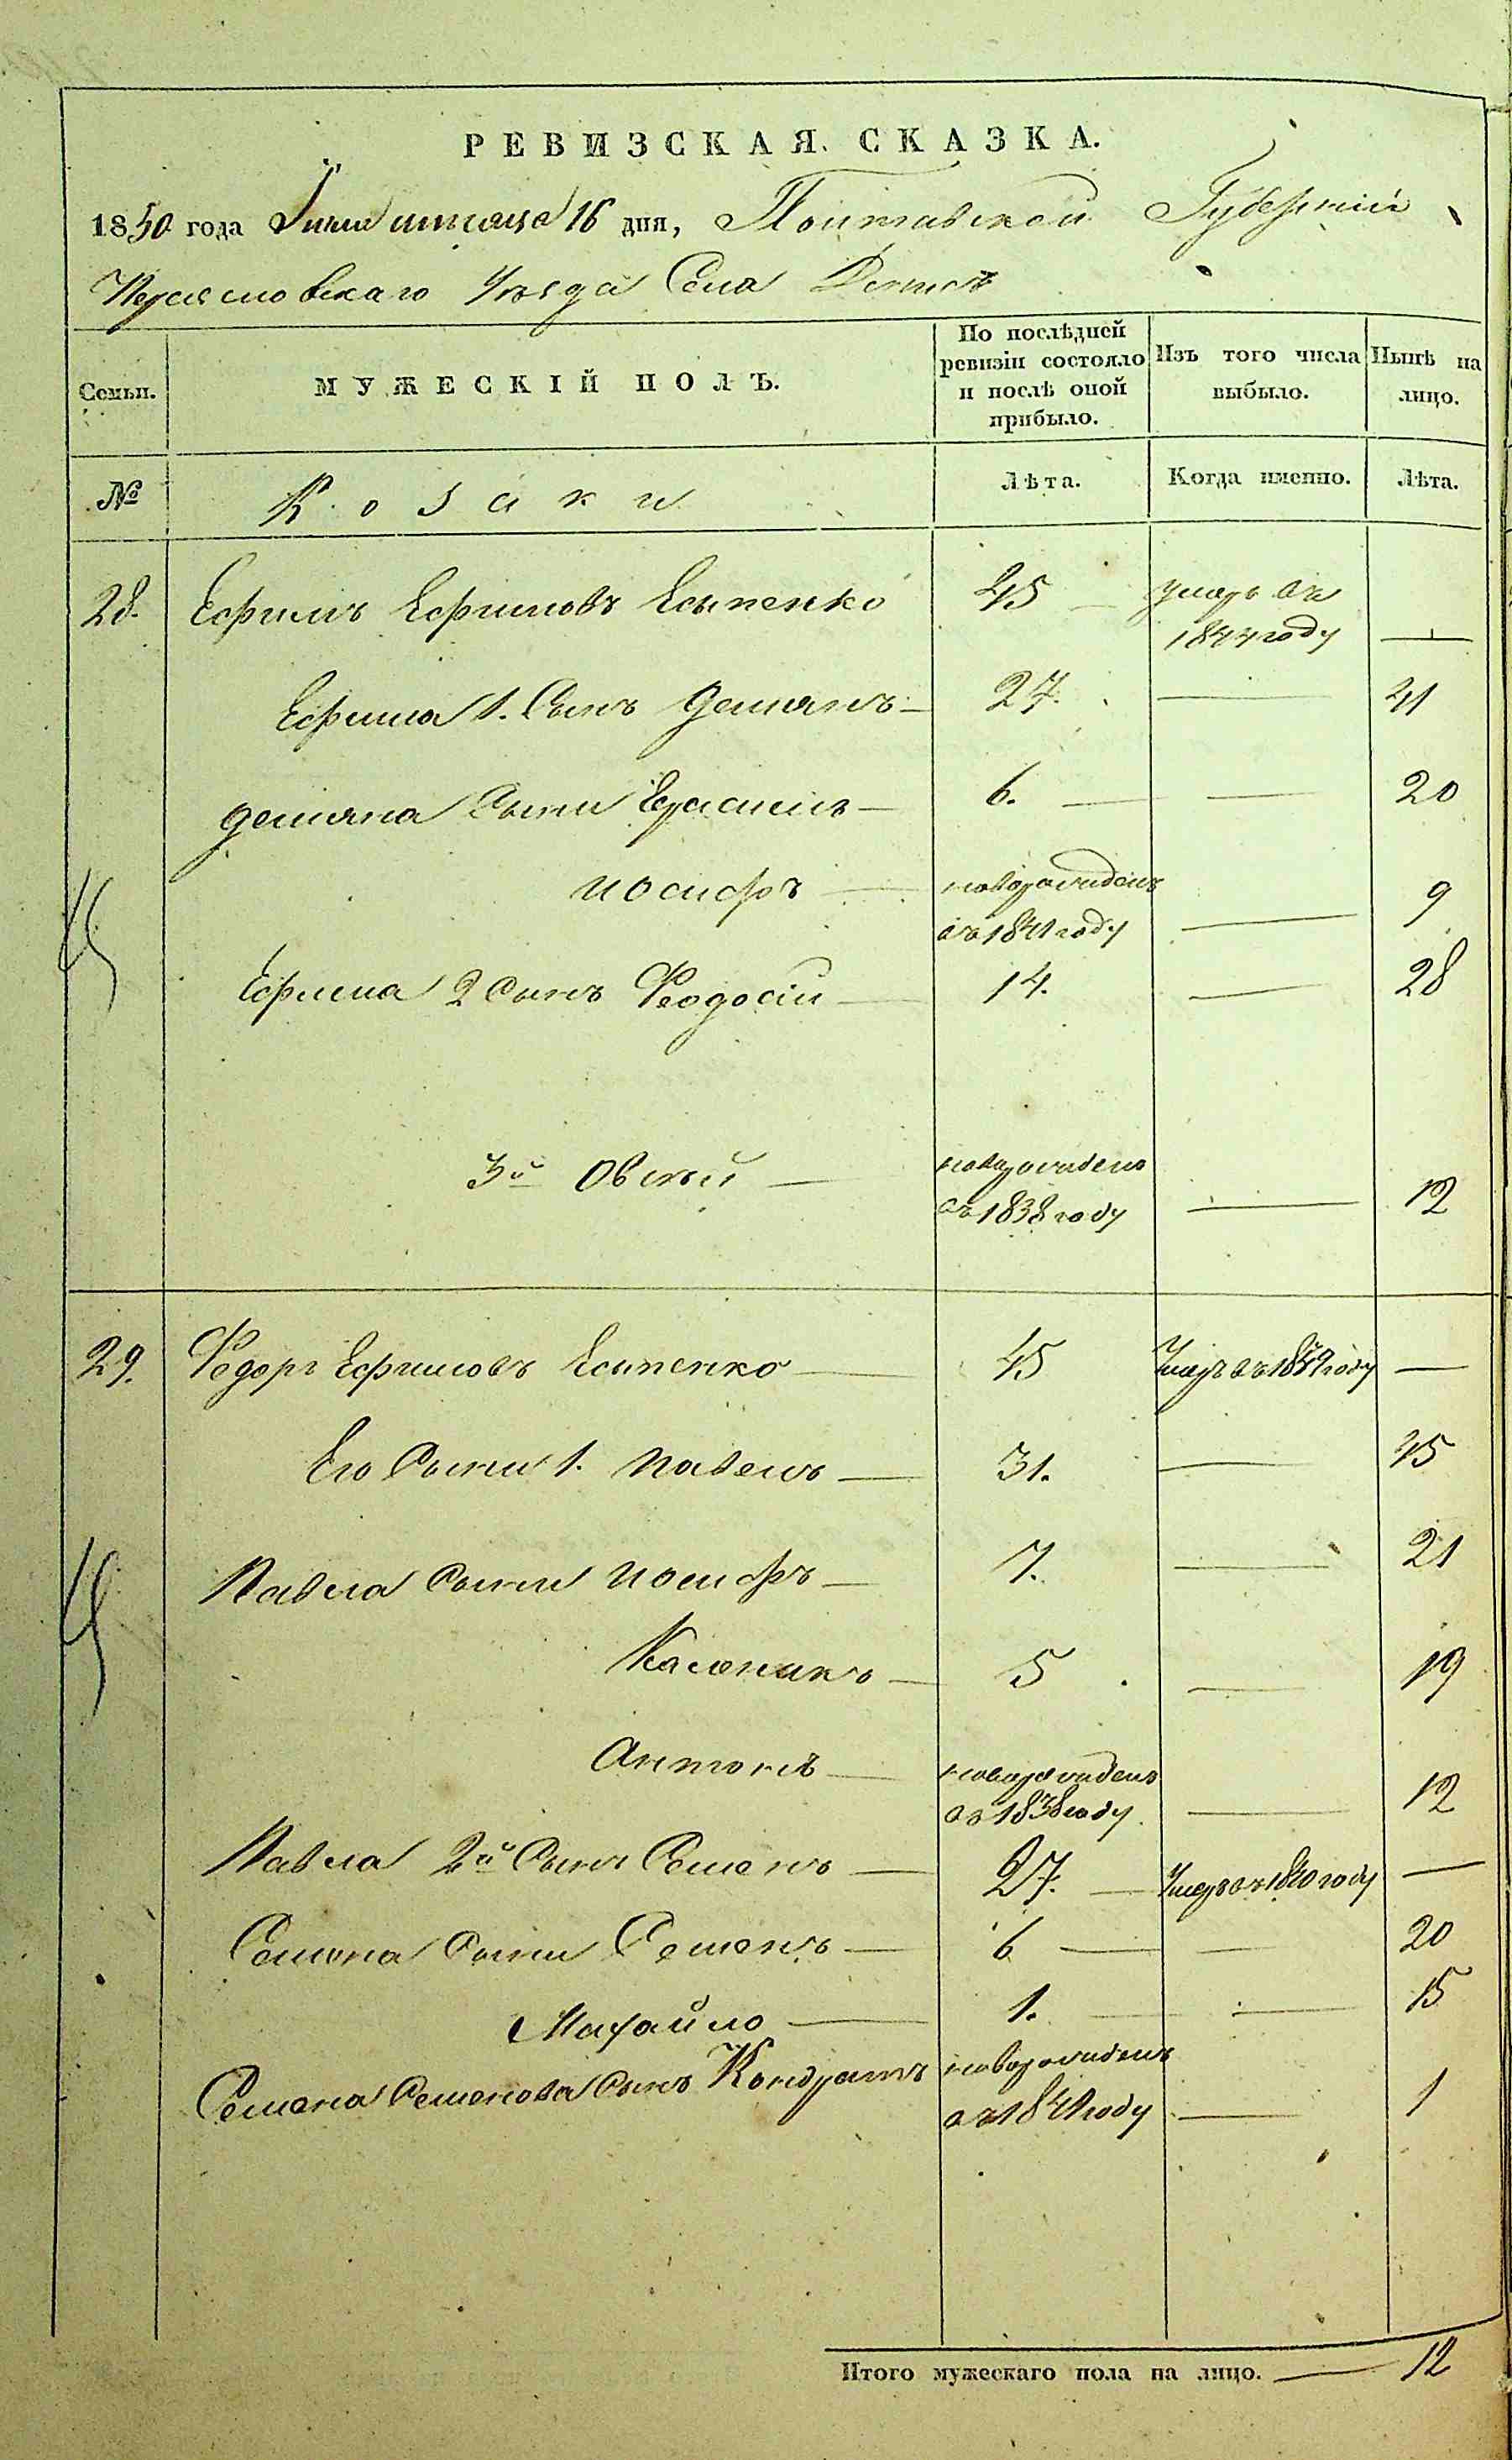 РЕВИЗСКАЯ СКАЗКА.
1850 года Іюня мѣсяца 16 дня, Полтавской Губерніи
Переясловскаго Уѣзда Села
Семьи. МУЖЕСКІЙ ПОЛЪ. По послѣдней ревизіи состояло и послѣ оной прибыло. Изъ того числа выбыло. Нынѣ на лицо.
№ Козаки Лѣта. Когда именно. Лѣта.
28. Ефимъ Ефимовъ Есипенко 45 — умеръ въ
1844 году —
Ефима 1. Сынъ Демянъ — 27. — 41
Демяна Сыны Ерасимъ — 6. — — 20
Иосифъ — новорожденъ
въ 1841 году — 9
Ефима 2 Сынъ Феодосій — 14. — 28
3й Овсѣй — новорожденъ
въ 1838 году — 12
29. Федоръ Ефимовъ Есипенко — 45 Умеръ въ 1849 году —
Его Сыны 1. Павелъ — 31. — 45
Павла Сыны Иосифъ — 7. — 21
Каленикъ — 5 — 19
Антонъ — новорожденъ
въ 1838 году — 12
Павла 2й Сынъ Семенъ — 27. — Умеръ въ 1840 году —
Семена Сыны Семенъ — 6 — — 20
Михайло — 1. — — 15
Семена Семенова Сынъ Кондратъ новорожденъ
въ 1849 году — 1
Итого мужескаго пола на лицо. — 12